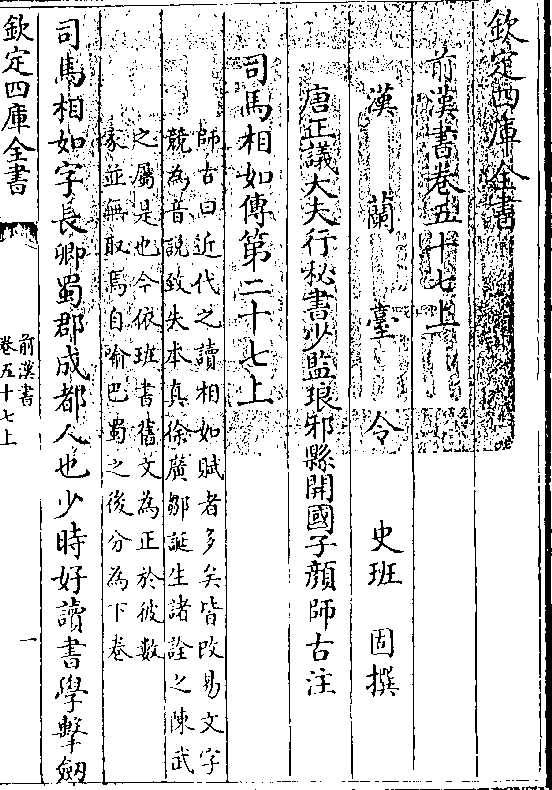 欽定四庫全書
前漢書卷五十七上
漢蘭臺令史班固撰
唐正議大夫行秘書少監琅邪縣開國子顔師古注
司馬相如傳第二十七上
師古曰近代之讀相如賦者多矣皆改易文字
競為音説致失本真徐廣鄒誕生諸詮之陳武
之屬是也今依班書舊文為正於彼數
家並無取焉自喻巴蜀之後分為下卷
司馬相如字長卿蜀郡成都人也少時好讀書學擊劒
欽定四庫全書
前漢書
卷五十七上
一